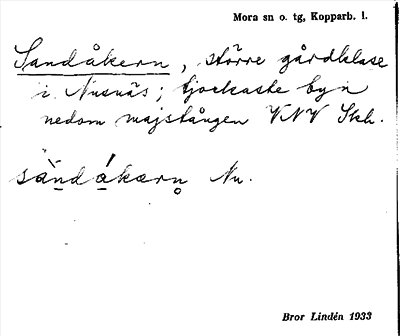 Mora sn o. tg, Kopparb. l.
Sandåkern, större gårdklase
i Nusnäs; tjockaste byn
nedom majstången VNV Skh.
sä̀ndákærn̥ Nu.
Bror Lindén 1933